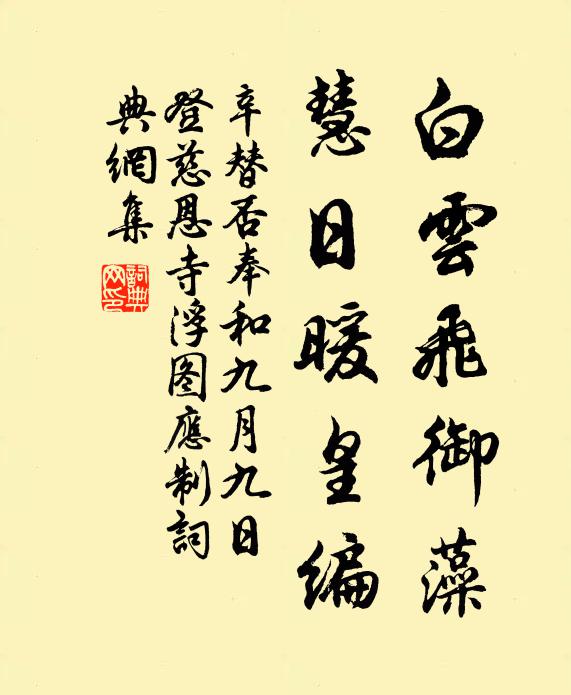 白雲飛御藻
慧日暖皇編
辛替否奉和九月九日
登慈恩寺浮图應制詞
典網集
詞典
网印